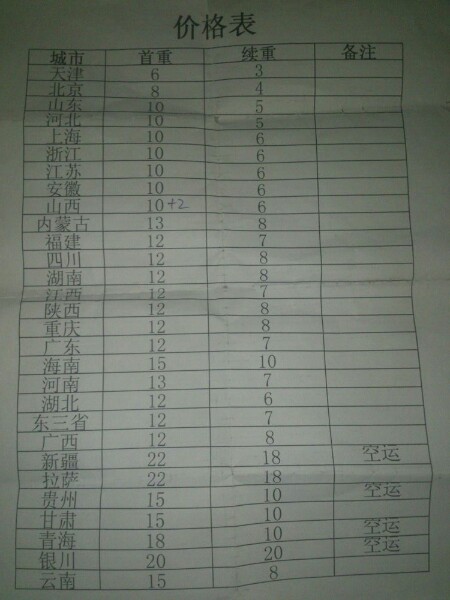 价格表
城市 首重 续重 备注
天津 6 3
北京 8 4
山东 10 5
河北 10 5
上海 10 6
浙江 10 6
江苏 10 6
安徽 10 6
山西 10+2 6
内蒙古 13 8
福建 12 7
四川 12 8
湖南 12 8
江西 12 7
陕西 12 8
重庆 12 8
广东 12 7
海南 15 10
河南 13 7
湖北 12 6
东三省 12 7
广西 12 8
新疆 22 18 空运
拉萨 22 18
贵州 15 10 空运
甘肃 15 10
青海 18 10 空运
银川 20 20 空运
云南 15 8